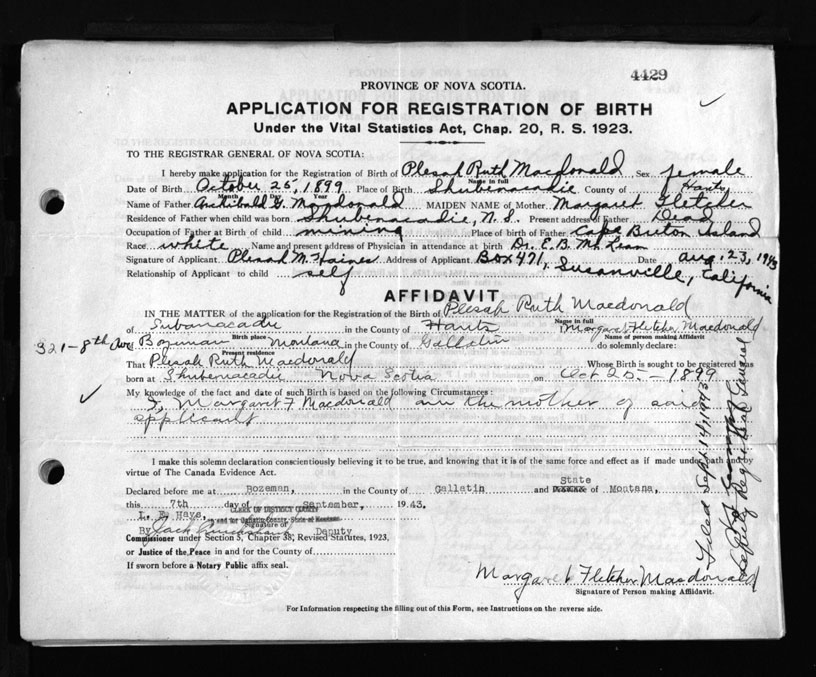 4429
PROVINCE OF NOVA SCOTIA.
APPLICATION FOR REGISTRATION OF BIRTH
Under the Vital Statistics Act, Chap. 20, R. S. 1923.
TO THE REGISTRAR GENERAL OF NOVA SCOTIA:
I hereby make application for the Registration of Birth of Plesah Ruth Macdonald Sex female
Name in full
Date of Birth October 25, 1899 Place of Birth Shubenacadie County of Hants
Month Day Year
Name of Father Archibald G. Macdonald MAIDEN NAME of Mother Margaret Fletcher
Residence of Father when child was born Shubenacadie, N.S. Present address of Father Dead
Occupation of Father at Birth of child mining Place of birth of Father Cape Breton Island
Race white Name and present address of Physician in attendance at birth Dr. E.B. Mc Lean
Signature of Applicant Plesah M. Haines Address of Applicant Box 471, Susanville, California Date Aug. 23, 1943
Relationship of Applicant to child self
AFFIDAVIT
IN THE MATTER of the application for the Registration of the Birth of Plesah Ruth Macdonald
Name in full
of Subanacadie in the County of Hants Margaret Fletcher Macdonald
Birth place Name of person making Affidavit
321-8th Ave Bozeman Montana in the County of Gallatin do solemnly declare:
Present residence
That Plesah Ruth Macdonald Whose Birth is sought to be registered was
born at Shubenacadie Nova Scotia on Oct 25 - 1899
My knowledge of the fact and date of such Birth is based on the following Circumstances:
I, Margaret F Macdonald am the mother of said
applicant
I make this solemn declaration conscientiously believing it to be true, and knowing that it is of the same force and effect as if made under oath and by
virtue of The Canada Evidence Act.
Declared before me at Bozeman, in the County of Gallatin and State Province of Montana,
this 7th day of September, 1943.
L. E. Hays, CLERK OF DISTRICT COURT
and for Gallatin County, State of Montana
Signature of
By Jack Deputy
Commissioner under Section 5, Chapter 38, Revised Statutes, 1923,
or Justice of the Peace in and for the County of
If sworn before a Notary Public affix seal.
Margaret Fletcher Macdonald
Signature of Person making Affidavit.
For Information respecting the filling out of this Form, see Instructions on the reverse side.
Filed Sept. 14, 1943
Deputy Registrar General